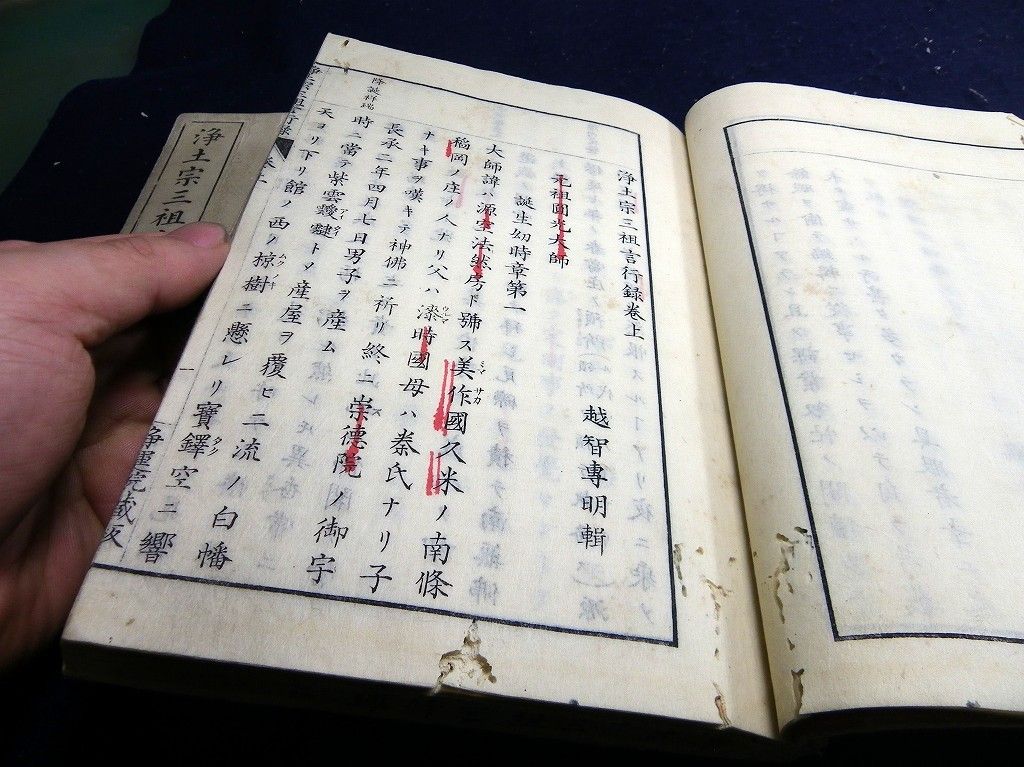 浄土宗三祖言行録卷上
越智專明輯
元祖圓光大師
誕生幼時章第一
大師諱ハ源空法然房ト號ス美作國久米ノ南條
稲岡ノ庄ノ人ナリ父ハ漆時國母ハ秦氏ナリ子
ナキ事ヲ嘆キテ神佛ニ祈リ終ニ崇德院ノ御宇
長承二年四月七日男子ヲ産ム
降誕祥瑞
時ニ當テ紫雲靉靆トメ産屋ヲ覆ヒ二流ノ白幡
天ヨリ下リ館ノ西ノ椋樹ニ懸レリ寶鐸空ニ響
浄土宗三祖言行録
浄土宗三祖